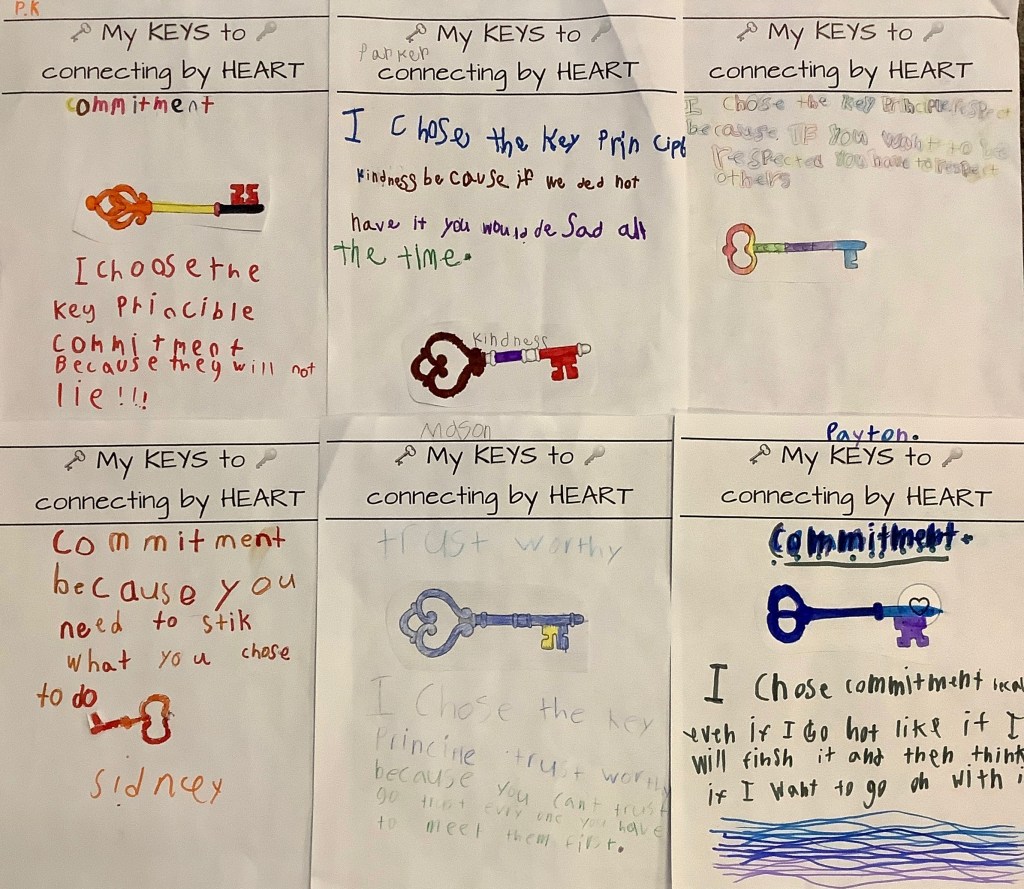 P.K
My KEYS to
connecting by HEART
commitment
I choose the
key Princible
commitment
Because they will not
lie!!!
My KEYS to
Parker
connecting by HEART
I Chose the key Principt
kindness because if we ded not
have it you would de Sad all
the time.
kindness
My KEYS to
connecting by HEART
I Chose the key Principle respect
because. IF you want to be
respected you have to respect
others
My KEYS to
connecting by HEART
Commitment
because you
need to stik
what you chose
to do
Sidney
Mason
My KEYS to
connecting by HEART
trust worthy
I Chose the key
Princine trust worthy
because you cant trust
go trust evry one you have
to meet them first.
Payton.
My KEYS to
connecting by HEART
Commitment.
I Chose commitment
even if I Do not like it I
will finsh it and then think
if I want to go on with i